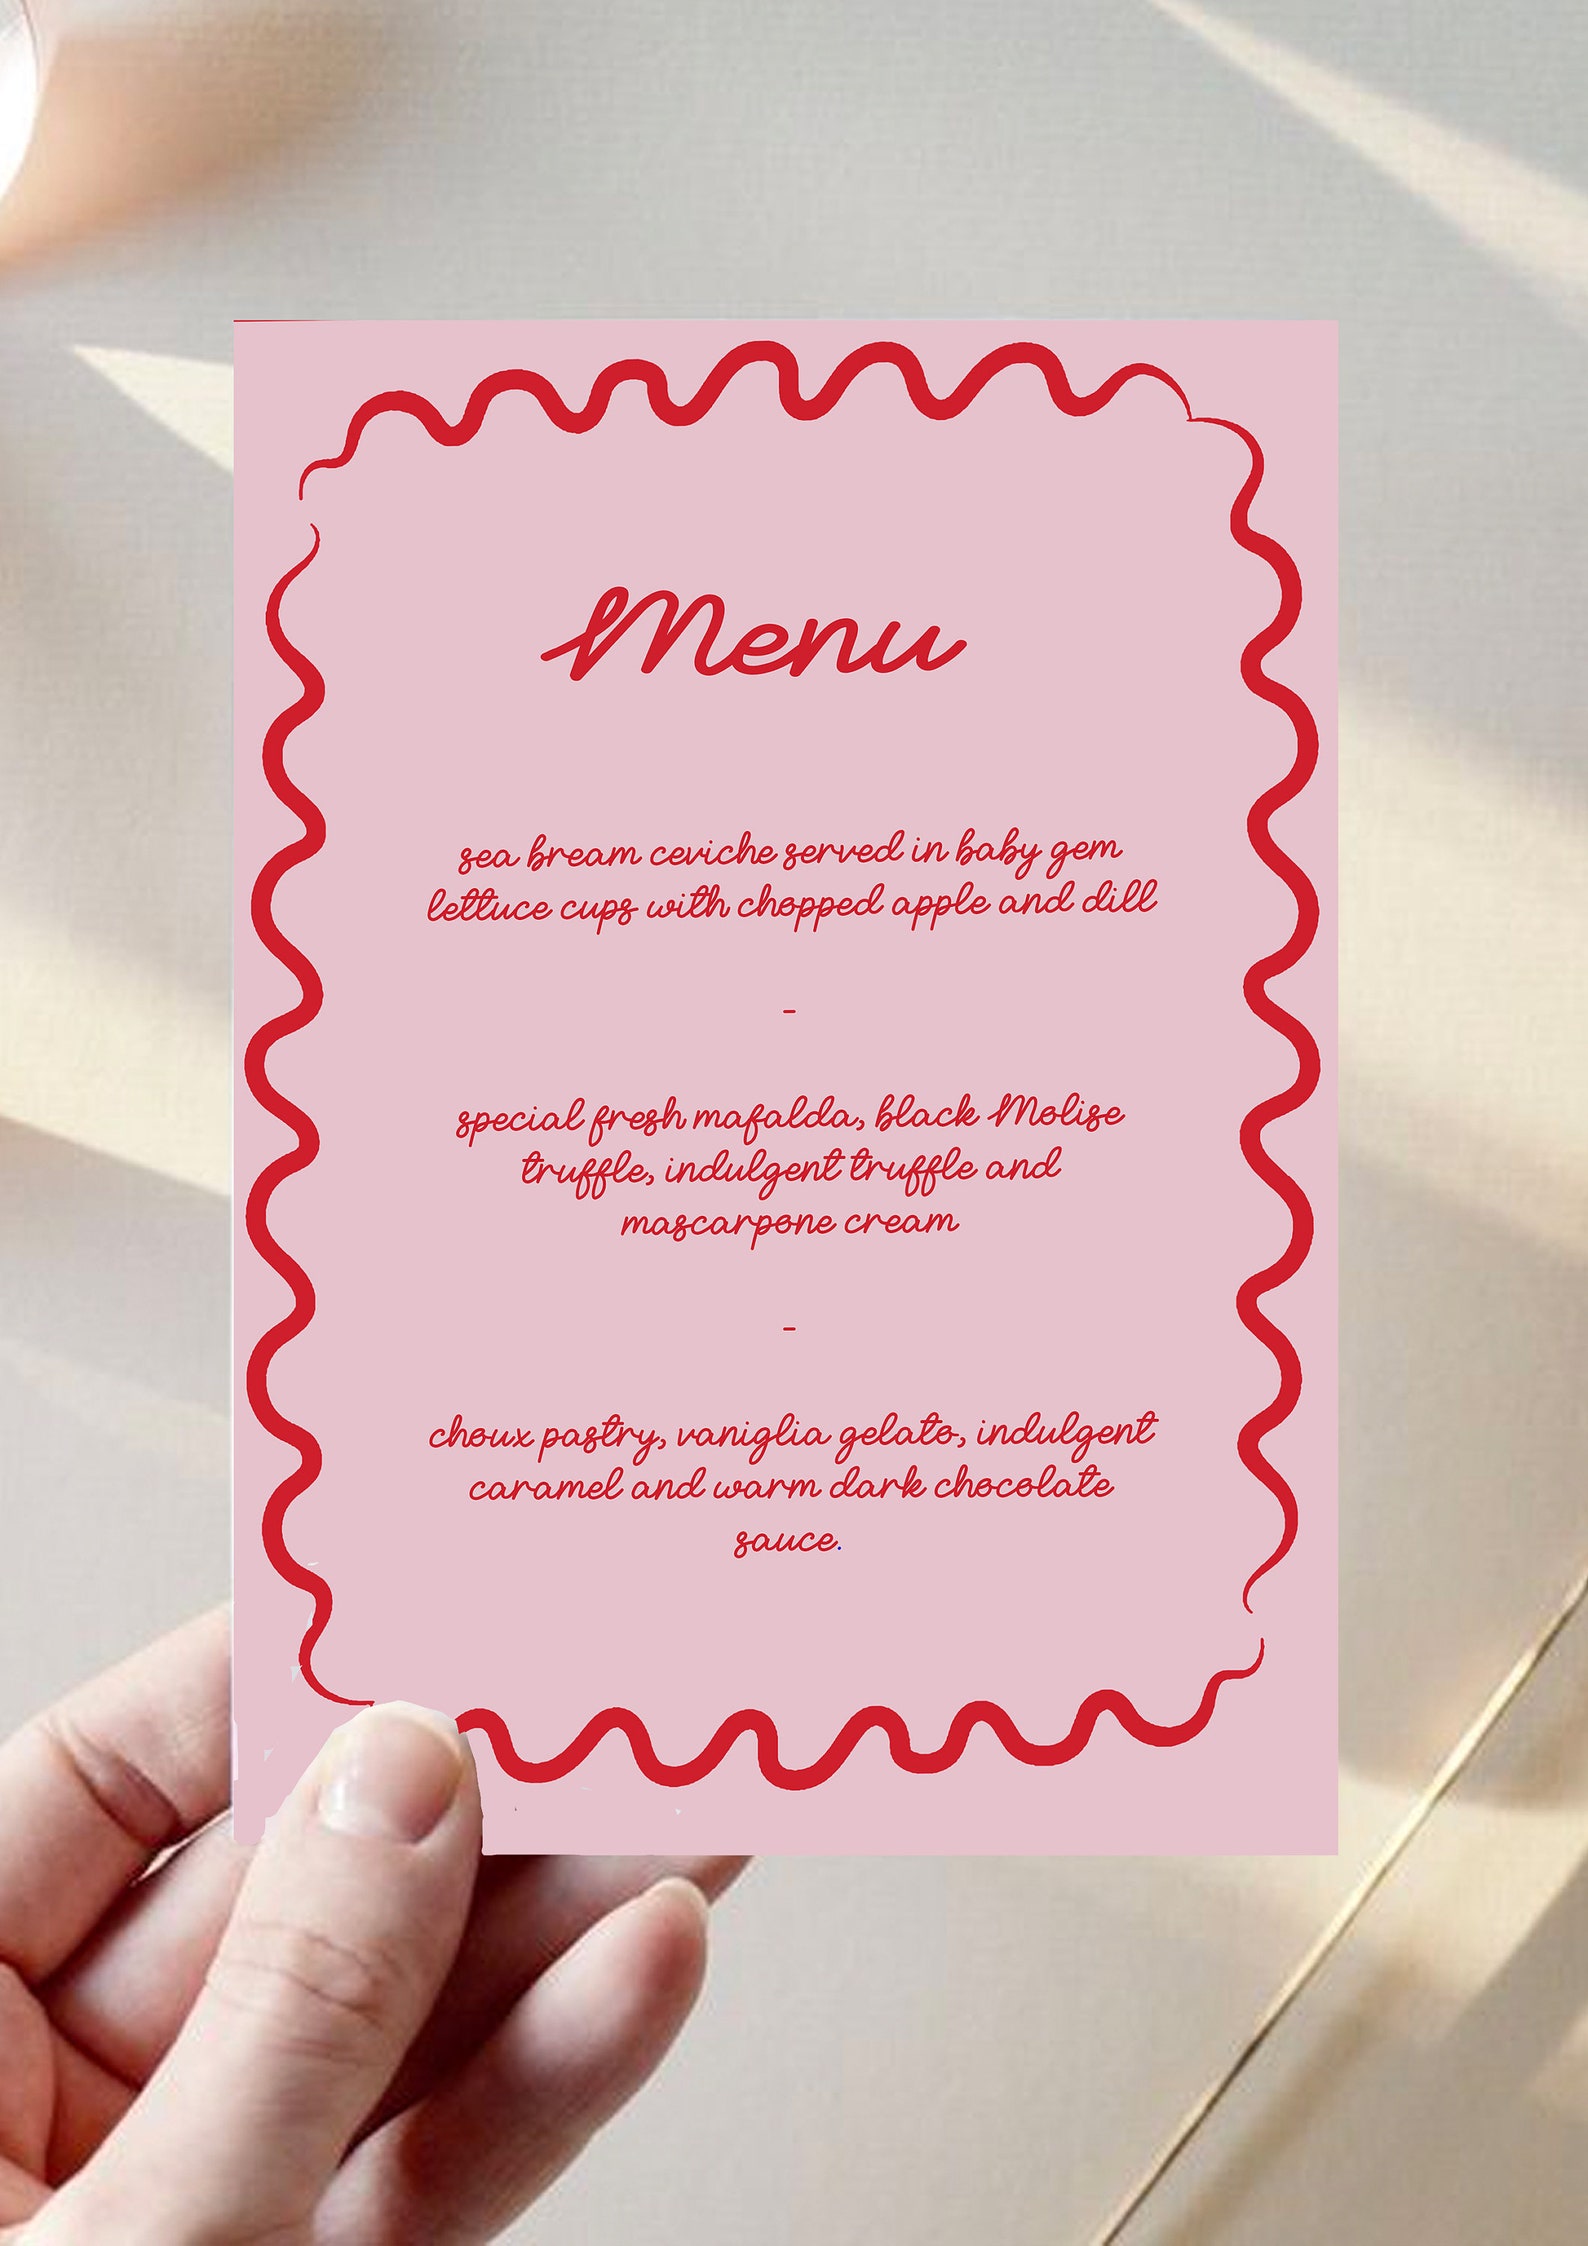 Menu
sea bream ceviche served in baby gem
lettuce cups with chopped apple and dill
-
special fresh mafalda, black Molise
truffle, indulgent truffle and
mascarpone cream
-
choux pastry, vaniglia gelato, indulgent
caramel and warm dark chocolate
sauce.